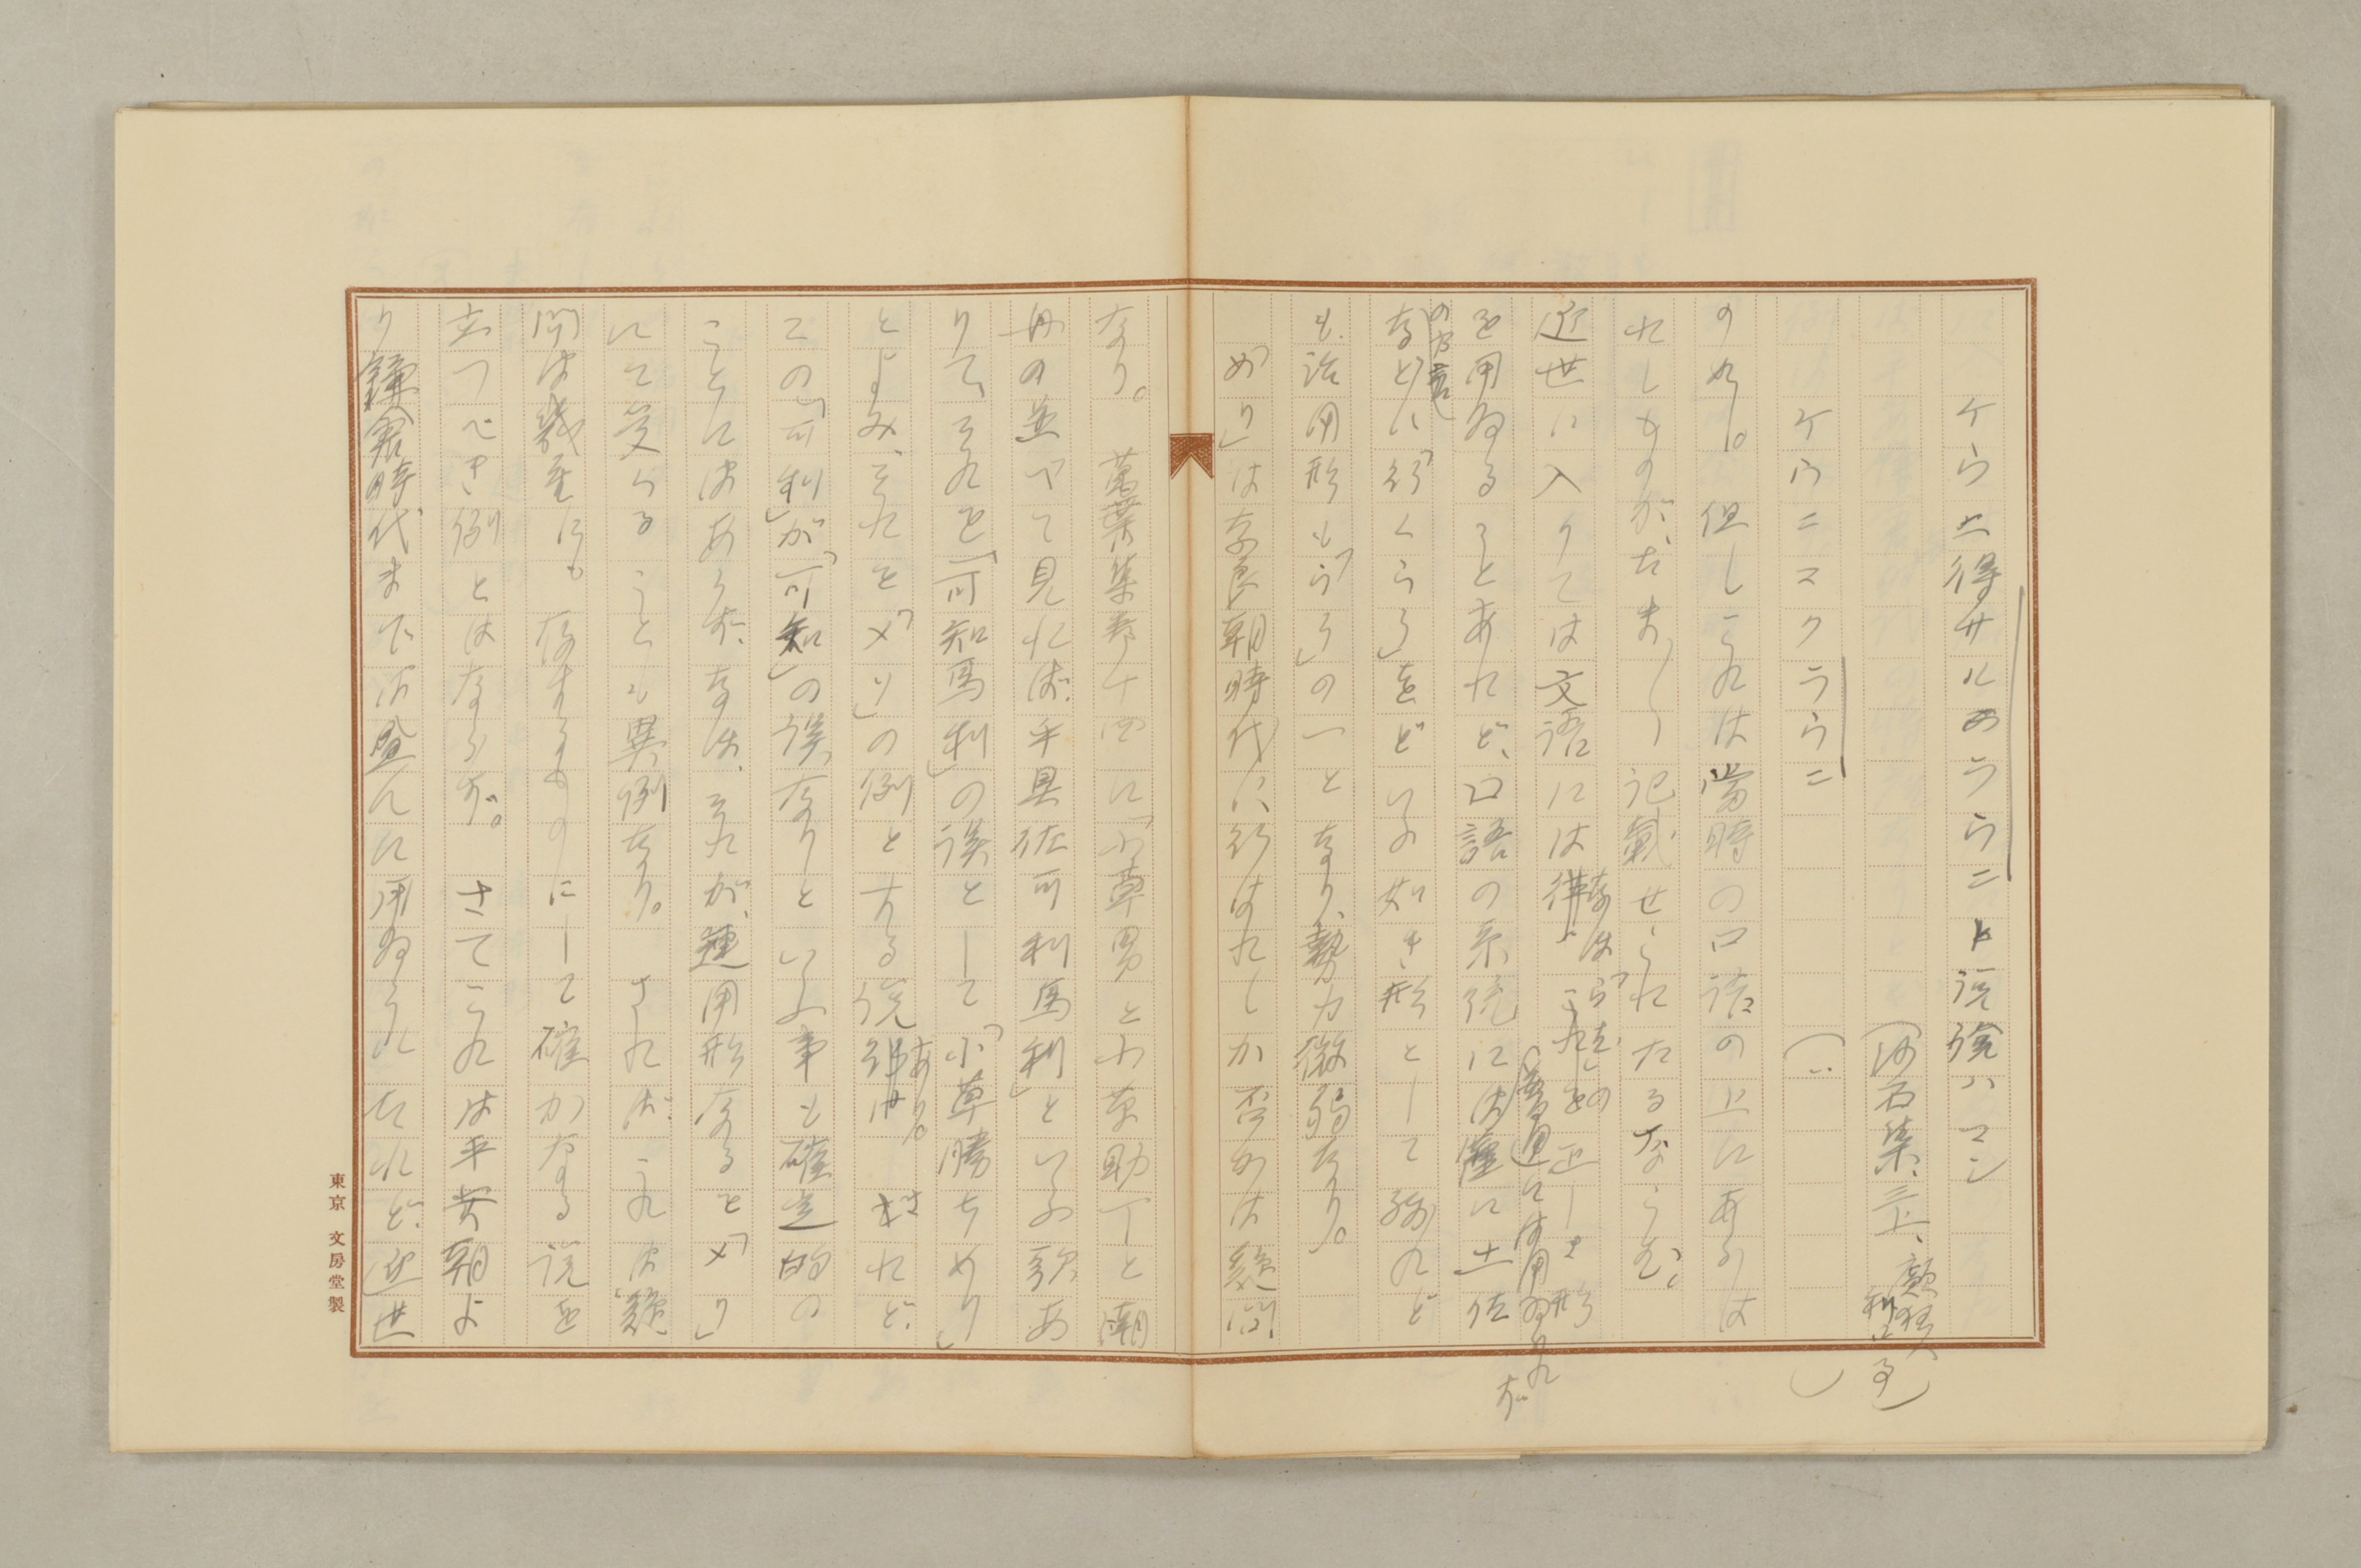 ケウニ得サルメラウニト説経ハマシ
(沙石集、三上、癲狂人利口ノ事)
ケウニスクラウニ (〃 )
のめし。 但しこれは当時の口語の上にあるは
れしものが、たま〳〵記載せられたるならむ。
近世に入りては文語にはなほ「らむ」の正しき形
(普通には用ゐられず
を用ゐることあれど、口語の系統には僅に土佐
の方言
などに「行くらう」などいふ如き形として残れど
も、活用形も「らう」の一となり、勢力微弱なり。
「めり」は奈良朝時代に行はれしか否かは疑問
なり。 萬葉集巻十四に「乎草男と乎草助丁と潮
舟の並べて見れば乎具佐可利馬利」といふ歌あ
りて、それを「可知馬利」の誤として「小草勝ちめり」
とよみ、それを「メリ」の例とする説あり。 されど、
この「可利」が「可知」の誤なりといふ事も確定的の
ことにはあらず、なほ、それが、連用形なると「メリ」
にて受くることも異例なり。 されば、これは疑
問は幾重にも存するものにして確かなる説を
立つべき例とはならず。 さてこれは平安朝よ
り鎌倉時代までは盛んに用ゐられたれど、近世
東京 文房堂製